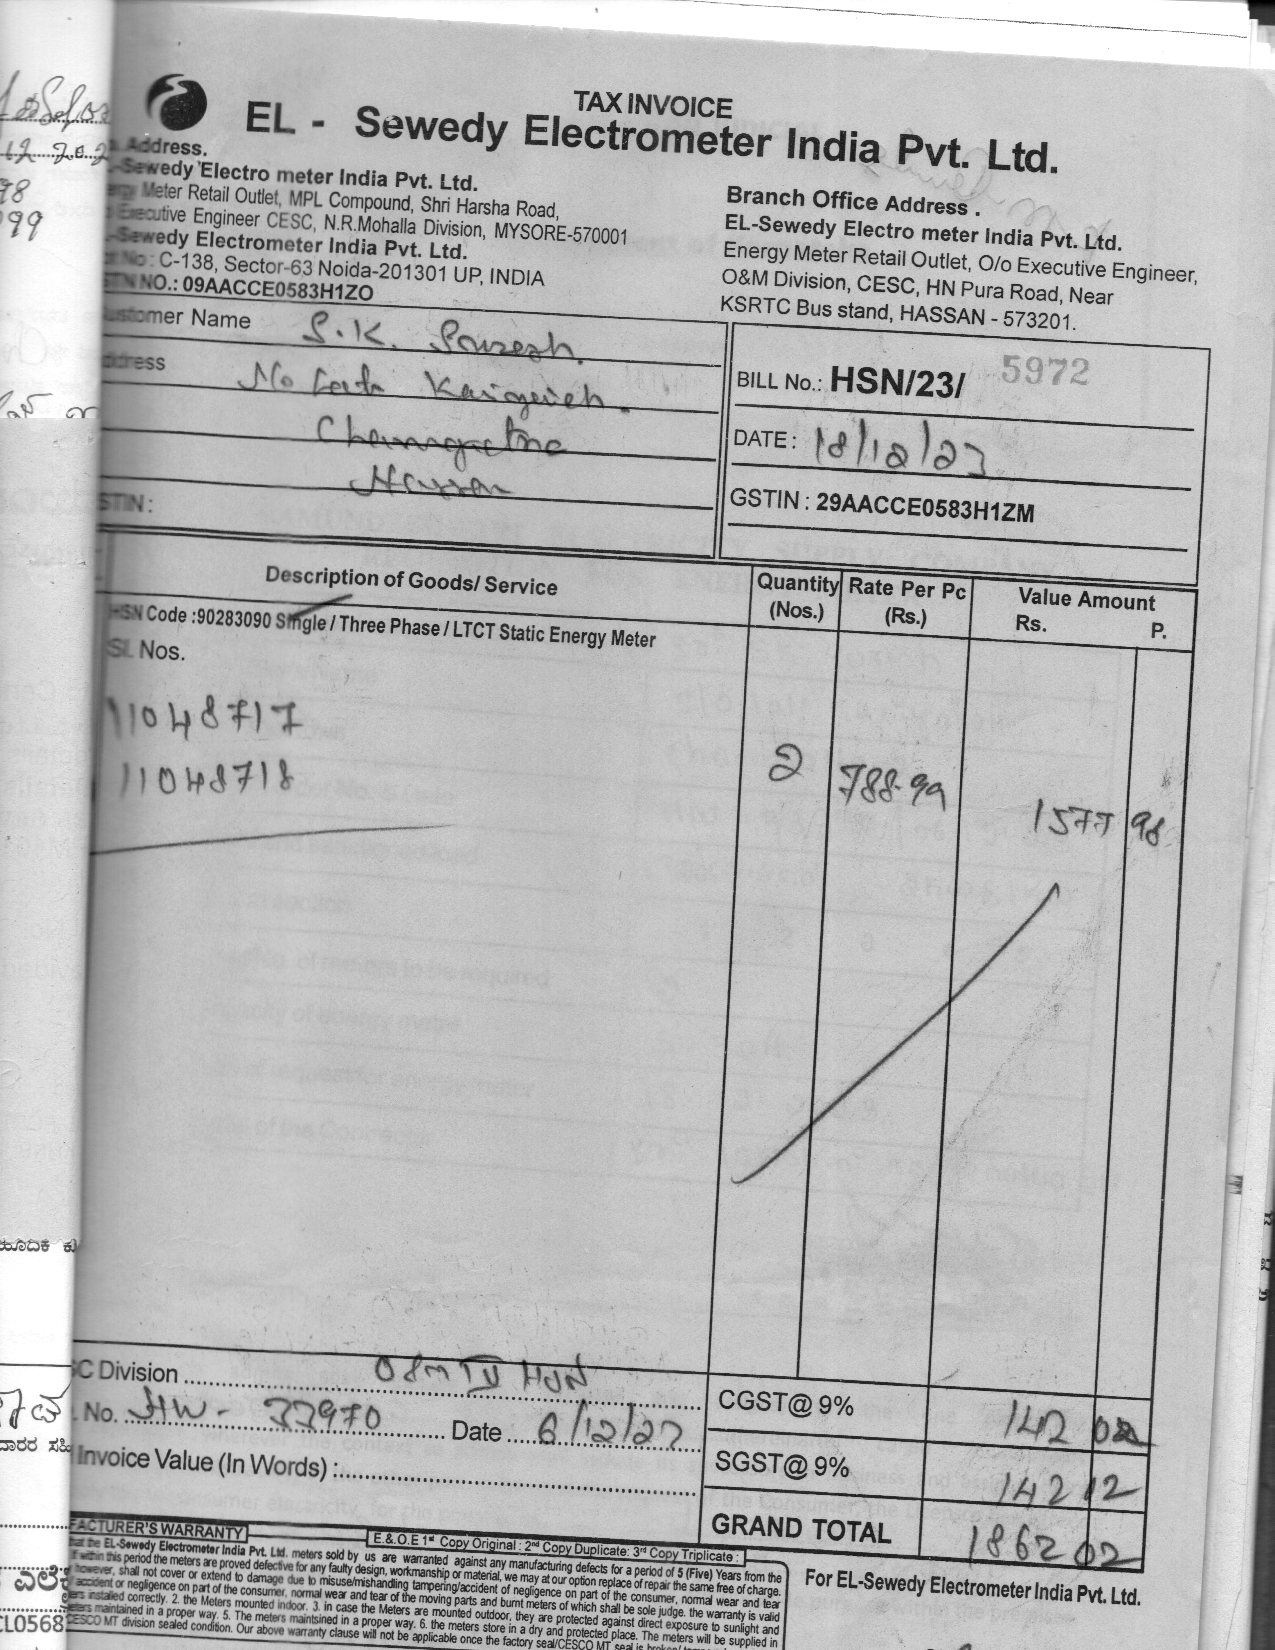 TAX INVOICE
EL - Sewedy Electrometer India Pvt. Ltd.
Address.
-Sewedy Electro meter India Pvt. Ltd.
Meter Retail Outlet, MPL Compound, Shri Harsha Road,
Executive Engineer CESC, N.R.Mohalla Division, MYSORE-570001
-Sewedy Electrometer India Pvt. Ltd.
No : C-138, Sector-63 Noida-201301 UP, INDIA
NO.: 09AACCE0583H1ZO
Branch Office Address .
EL-Sewedy Electro meter India Pvt. Ltd.
Energy Meter Retail Outlet, O/o Executive Engineer,
O&M Division, CESC, HN Pura Road, Near
KSRTC Bus stand, HASSAN - 573201.
ustomer Name S.K.
ddress
Hassan
STIN :
BILL No.: HSN/23/ 5972
DATE : 18/12/23
GSTIN : 29AACCE0583H1ZM
Description of Goods/ Service Quantity (Nos.) Rate Per Pc (Rs.) Value Amount Rs. P.
HSN Code :90283090 Single / Three Phase / LTCT Static Energy Meter
SL Nos.
11048717
11048718
2 788-99 1577 98
C Division O&M HSN
No. HW - 33970 Date 6/12/23
Invoice Value (In Words) :
CGST@ 9% 142 02
SGST@ 9% 142 12
GRAND TOTAL 1862 02
FACTURER'S WARRANTY
E.&.O.E 1st Copy Original : 2nd Copy Duplicate: 3rd Copy Triplicate :
that the EL-Sewedy Electrometer India Pvt. Ltd. meters sold by us are warranted against any manufacturing defects for a period of 5 (Five) Years from the
If within this period the meters are proved defective for any faulty design, workmanship or material, we may at our option replace of repair the same free of charge.
however, shall not cover or extend to damage due to misuse/mishandling tampering/accident of negligence on part of the consumer, normal wear and tear
accident or negligence on part of the consumer, normal wear and tear of the moving parts and burnt meters of which shall be sole judge. the warranty is valid
installed correctly. 2. the Meters mounted indoor. 3. in case the Meters are mounted outdoor, they are protected against direct exposure to sunlight and
maintained in a proper way. 5. The meters maintsined in a proper way. 6. the meters store in a dry and protected place. The meters will be supplied in
CESCO MT division sealed condition. Our above warranty clause will not be applicable once the factory seal/CESCO MT seal is broken/
For EL-Sewedy Electrometer India Pvt. Ltd.